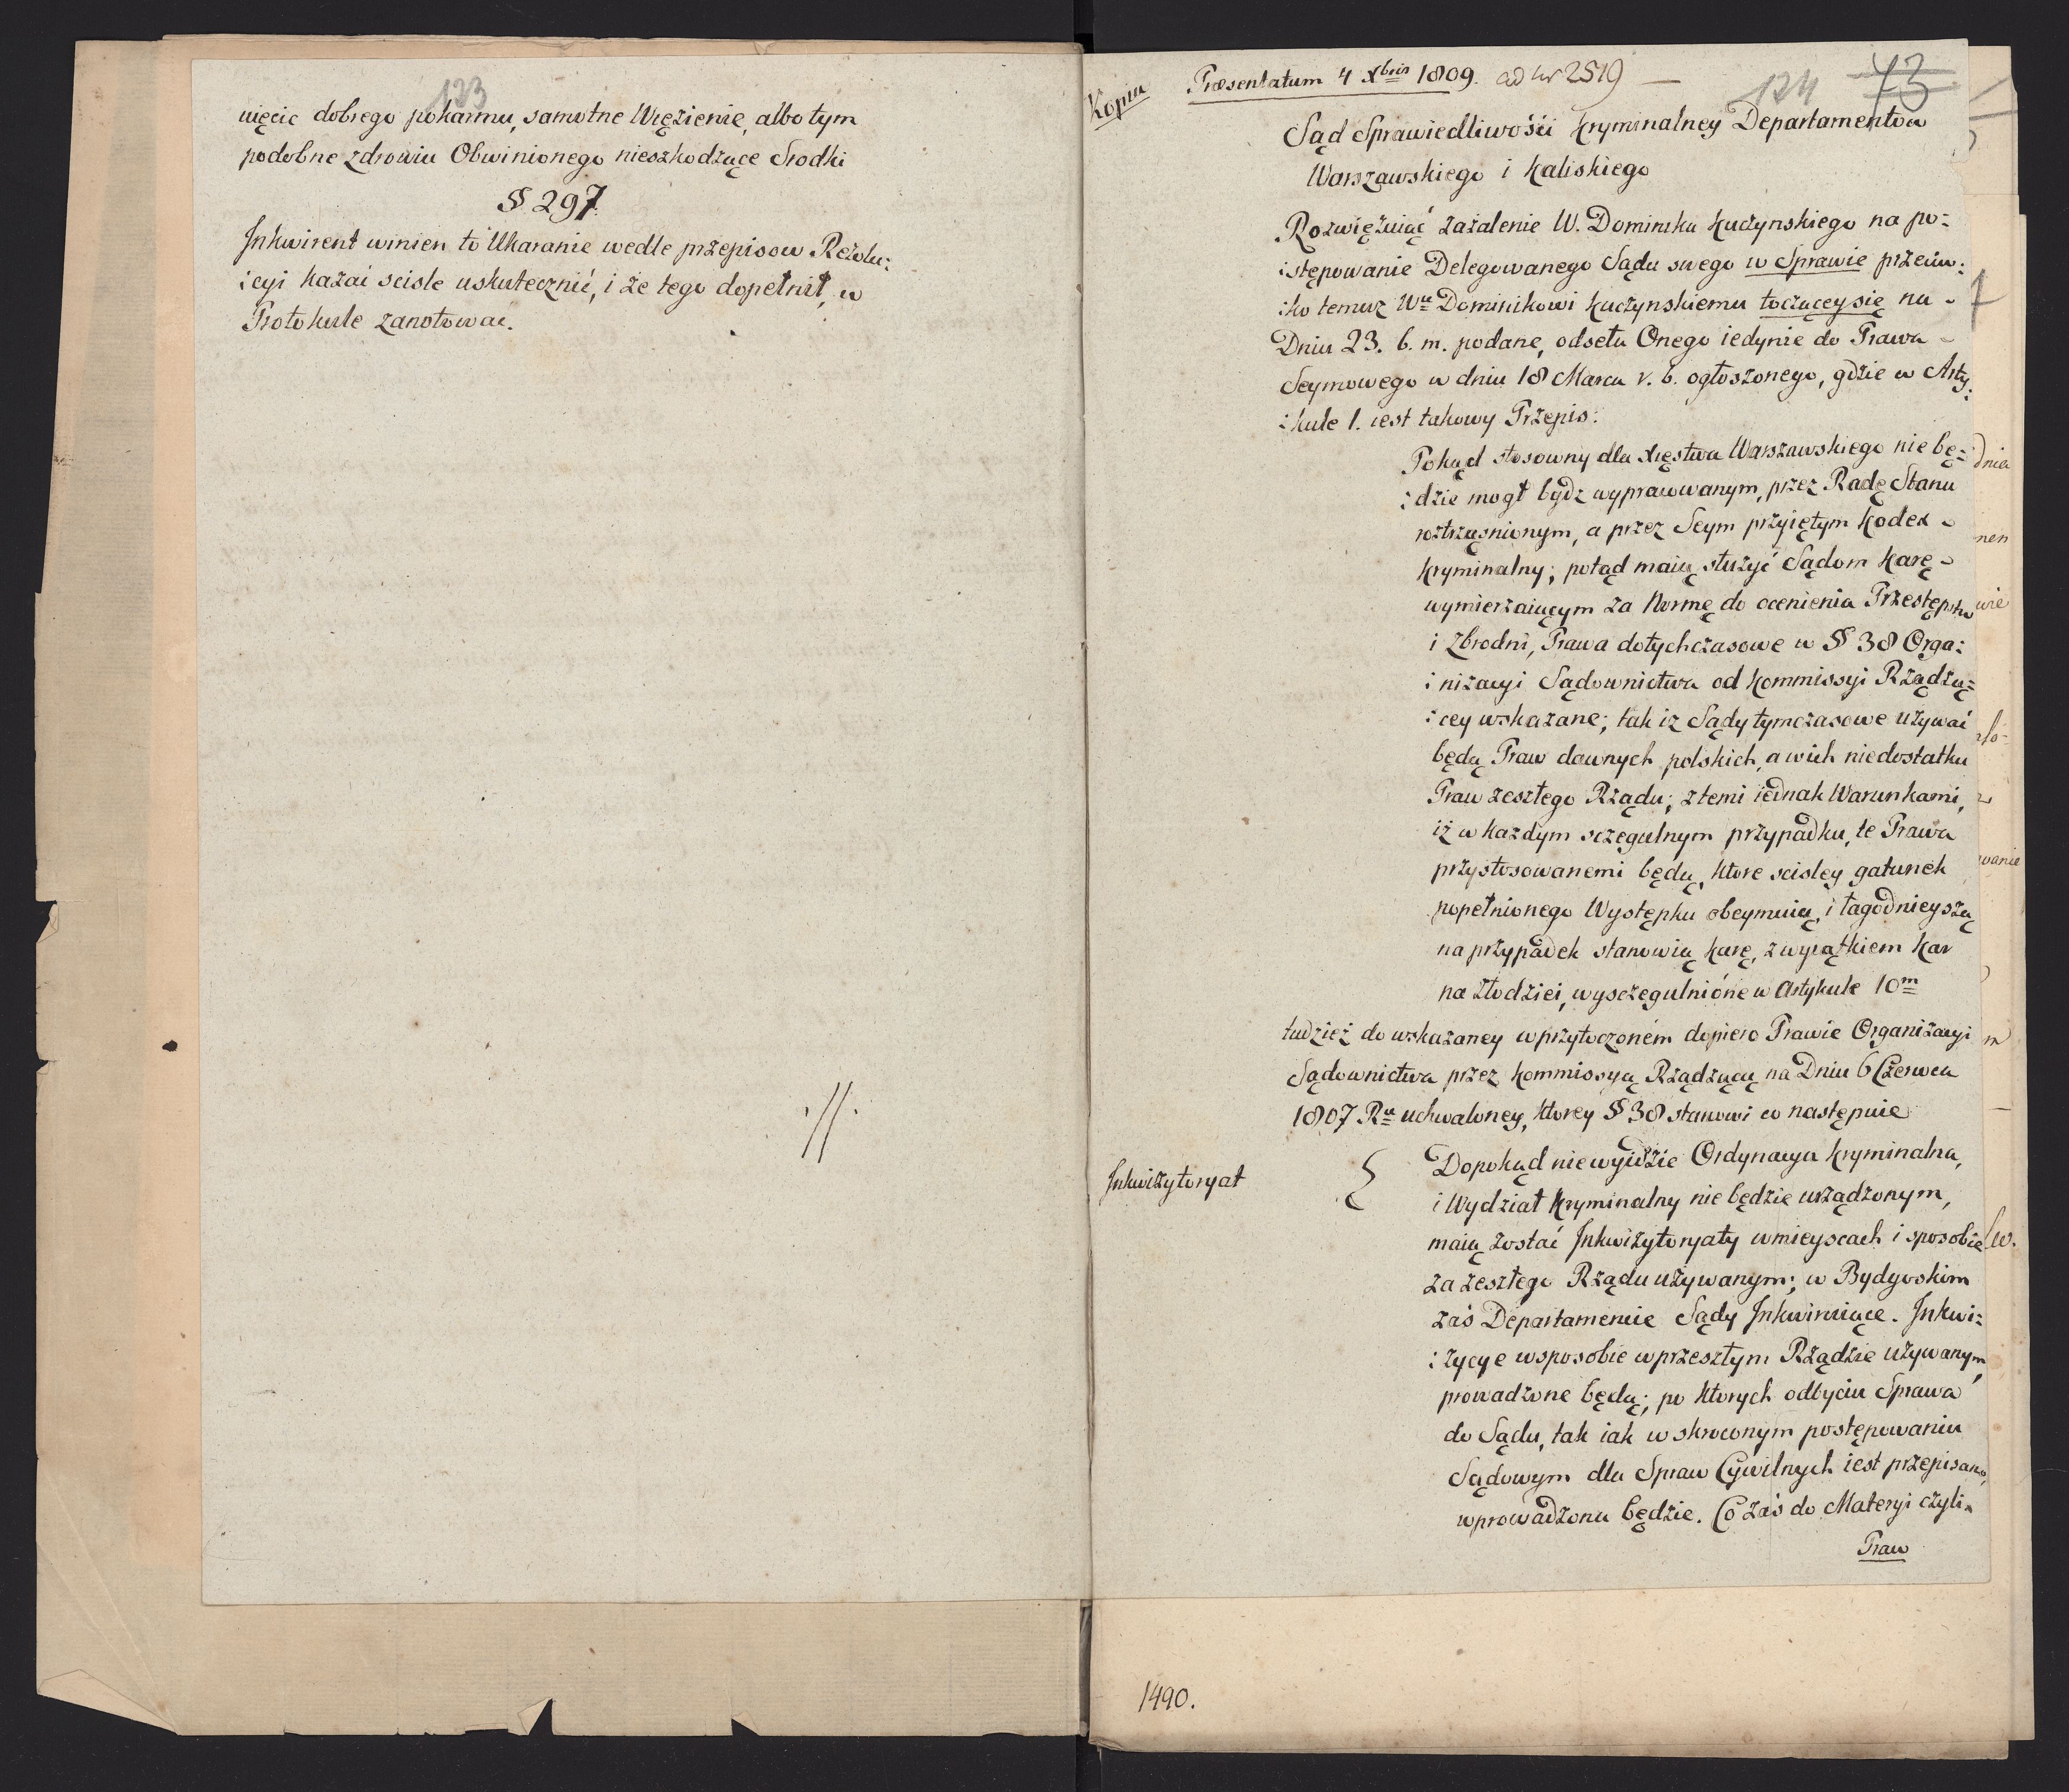 123
nięcie dobrego pokarmu, samotne Więzienie, albo tym
podobne zdrowiu Obwinionego nieszkodzące Srodki
§ 297.
Inkwirent winien to Ukaranie wedle przepisow Rezolu:
:cyi kazać scisle uskutecznić, i że tego dopełnił, w
Protokule zanotować.
.//.
Kopia
Præsentatum 4 Xbris 1809. ad Nr 2519
124 73
Sąd Sprawiedliwości Kryminalney Departamentow
Warszawskiego i Kaliskiego
Rozwiązuiąć zażalenie W. Dominika Kuczynskiego na po:
:stępowanie Delegowanego Sądu swego w Sprawie przeciw:
:ko temuz Wu Dominikowi Kuczynskiemu toczącey się na
Dniu 23. b. m. podane, odseła Onego iedynie do Prawa
Seymowego w dniu 18 Marca r. b. ogłoszonego, gdzie w Arty:
:kule 1. iest takowy Przepis:
Pokąd stosowny dla Xięstwa Warszawskiego nie bę:
:dzie mogł bydz wyprawowanym, przez Radę Stanu
roztrząsnionym, a przez Seym przyiętym Kodex
Kryminalny; potąd maią służyć Sądom karę
wymierzaiącym za Normę do ocenienia Przestępstw
i Zbrodni, Prawa dotychczasowe w § 38 Orga:
:nizacyi Sądownictwa od Kommissyi Rządzą:
:cey wskazane; tak iz Sądy tymczasowe używać
będą Praw dawnych polskich, a w ich niedostatku
Praw zeszłego Rządu; z temi iednak Warunkami,
iż w każdym sczegulnym przypadku, te Prawa
przystosowanemi będą, ktore scisley gatunek
popełnionego Występku obeymuią, i łagodnieyszą
na przypadek stanowią karę, z wyiątkiem kar
na złodziei, wysczegulnióne w Artykule 10m
tudzież do wskazaney w przytoczoném dopiero Prawie Organizacyi
Sądownictwa przez Kommissyą Rządzącą na Dniu 6 Czerwca
1807 Ru uchwaloney, ktorey § 38 stanowi co następuie
Inkwizytoryat
Dopokąd nie wyidzie Ordynacya Kryminalna,
i Wydział Kryminalny nie będzie urządzonym,
maią zostać Inkwizytoryaty w mieyscach i sposobie
za zeszłego Rządu używanym; w Bydgoskim
zaś Departamencie Sądy Inkwiruiące. Inkwi:
:zycye w sposobie w przeszłym Rządzie używanym,
prowadzone będą; po ktorych odbyciu Sprawa
do Sądu, tak iak w skroconym postępowaniu
Sądowym dla Spraw Cywilnych iest przepisano,
wprowadzona będzie. Co zaś do Materyi czyli
Praw
1490.